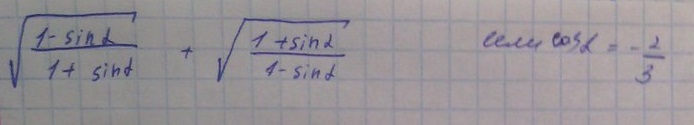 √((1 - sinα)/(1 + sinα)) + √((1 + sinα)/(1 - sinα)) если cosα = -2/3